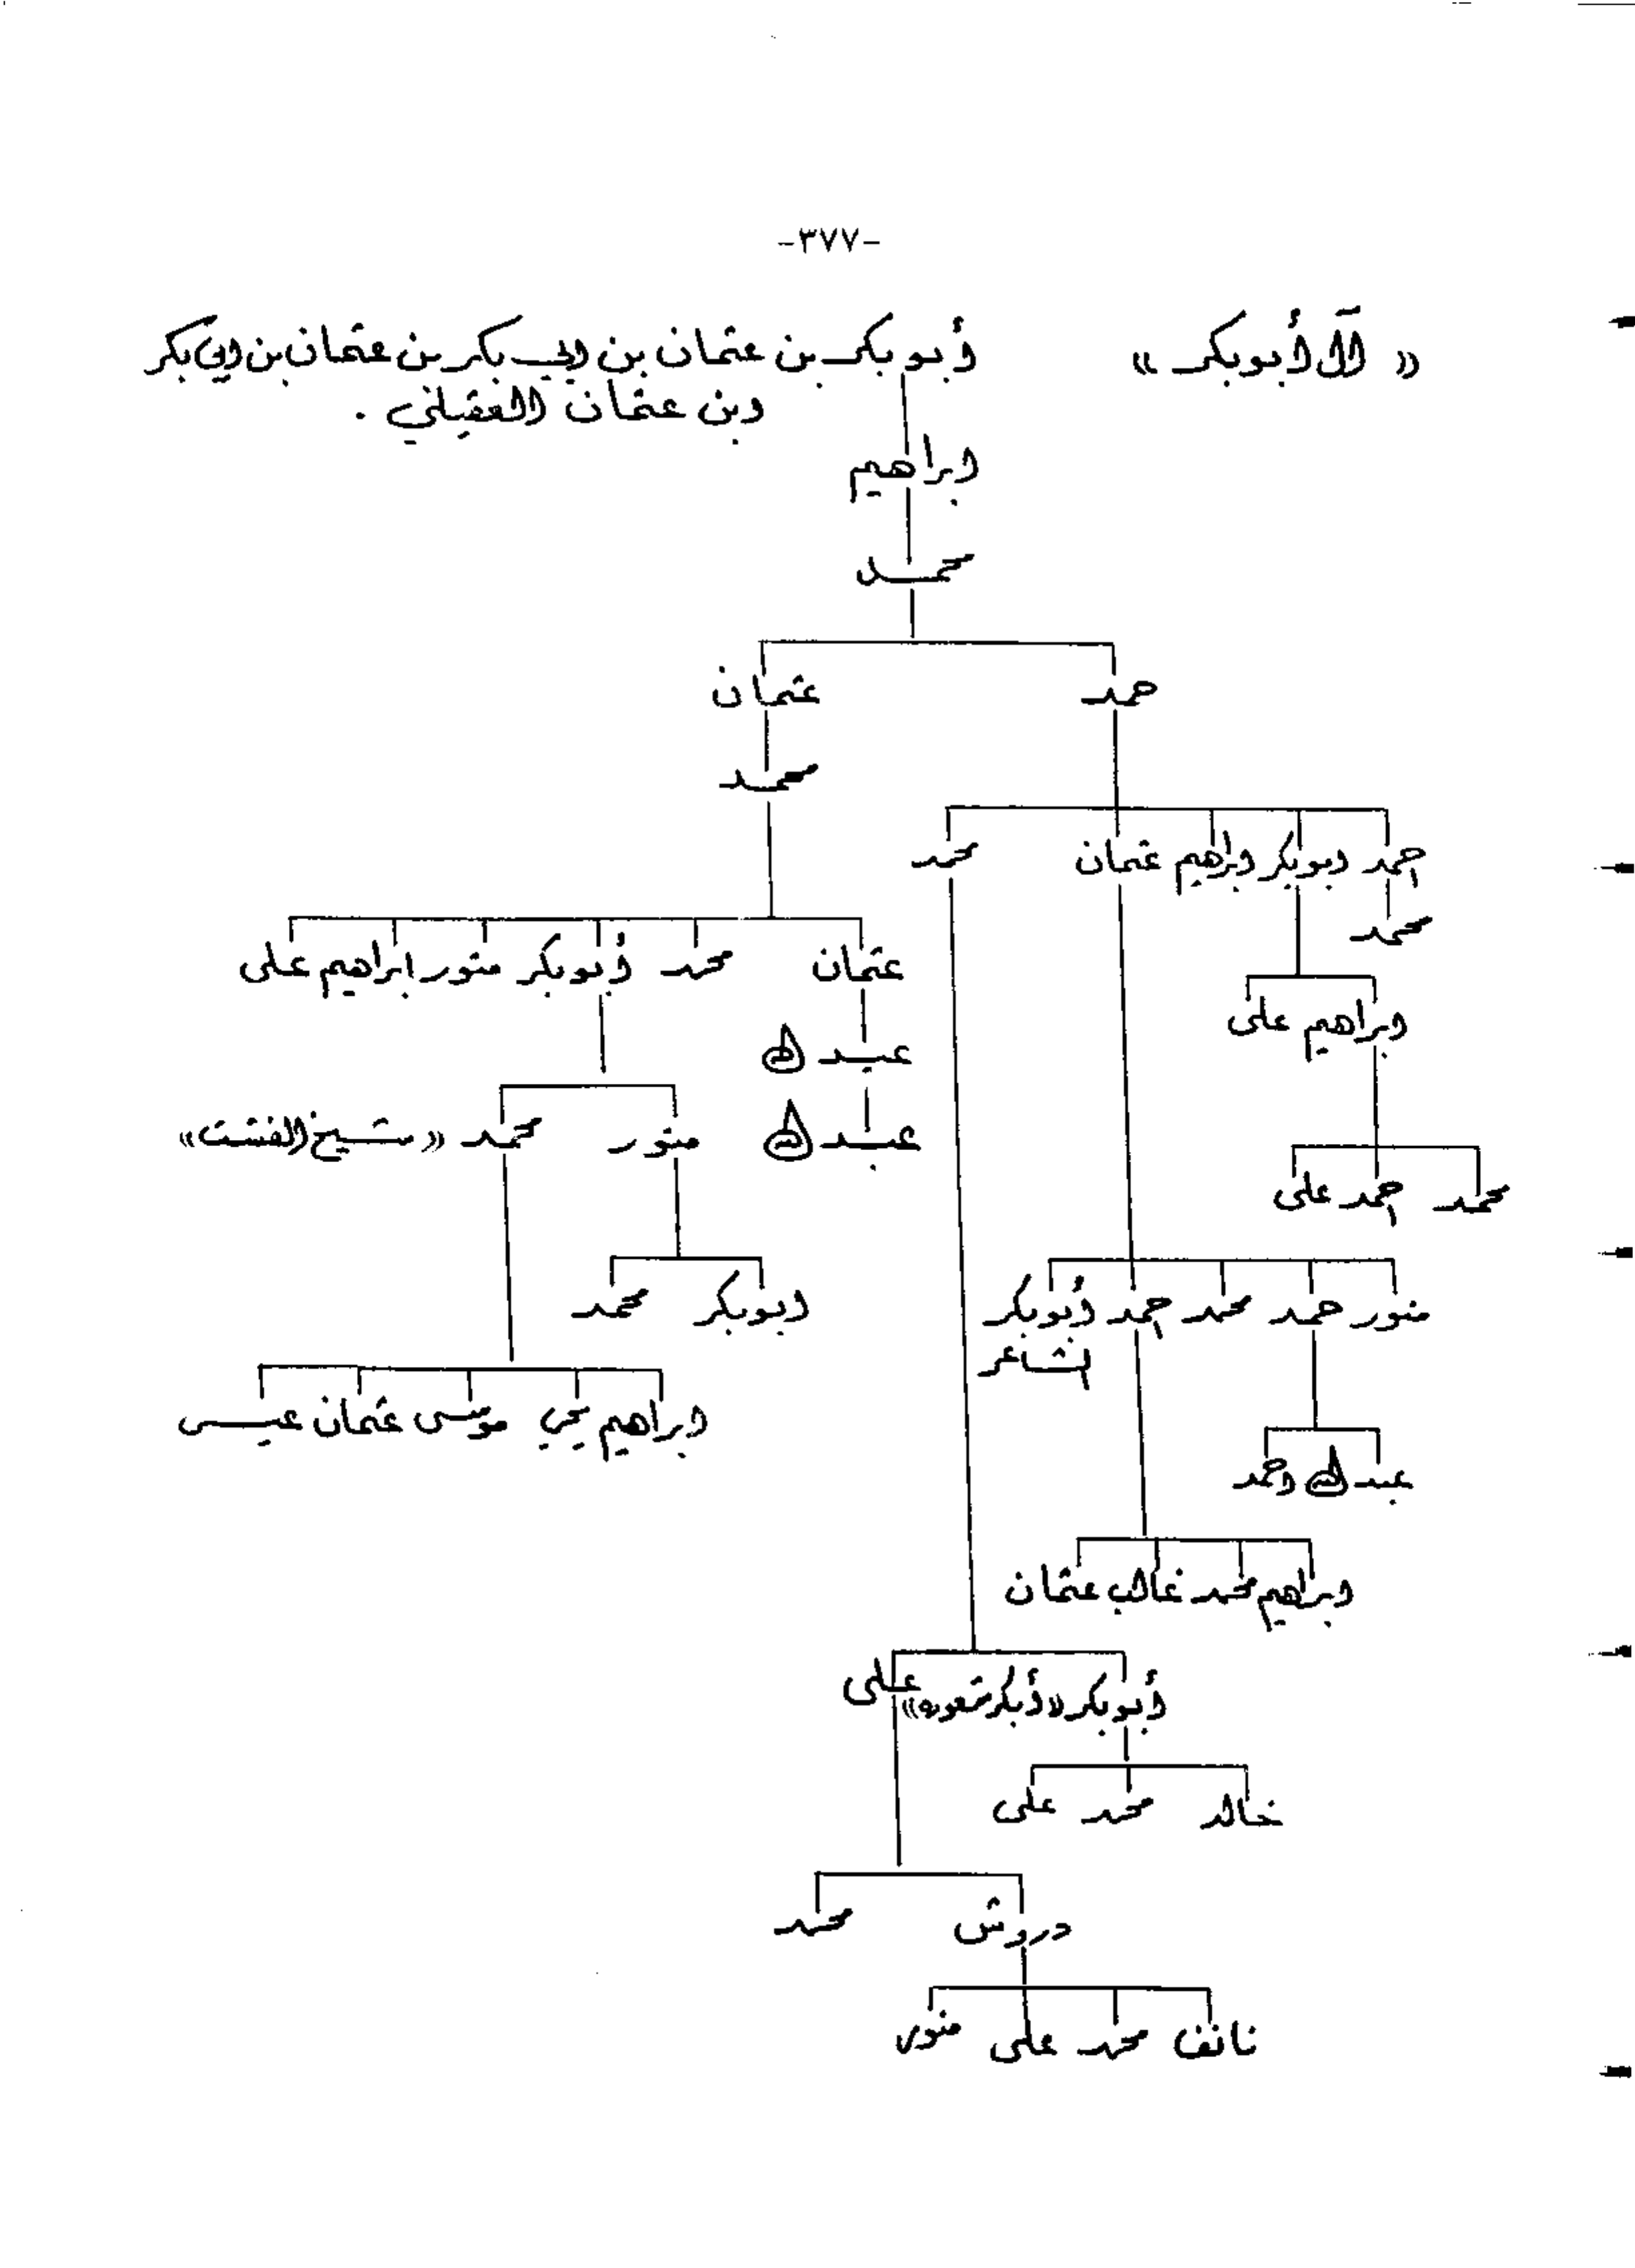 -٣٧٧-
« آل أبوبكر » أبوبكر بن عثمان بن ابي بكر بن عثمان بن ابي بكر
ابن عثمان العقيلي .
ابراهيم
محمد
حمد عثمان
محمد
احمد ابوبكر ابراهيم عثمان محمد
محمد
عثمان محمد أبوبكر منور ابراهيم على
ابراهيم على
عبد الله
عبد الله
منور محمد « شيخ الفشت »
محمد احمد على
منور حمد محمد احمد أبوبكر
الشاعر
ابوبكر محمد
ابراهيم يحي موسى عثمان عيسى
عبد الله احمد
ابراهيم محمد غالب عثمان
أبوبكر «أبكر » على
خالد محمد على
دروش محمد
نائف محمد على منور